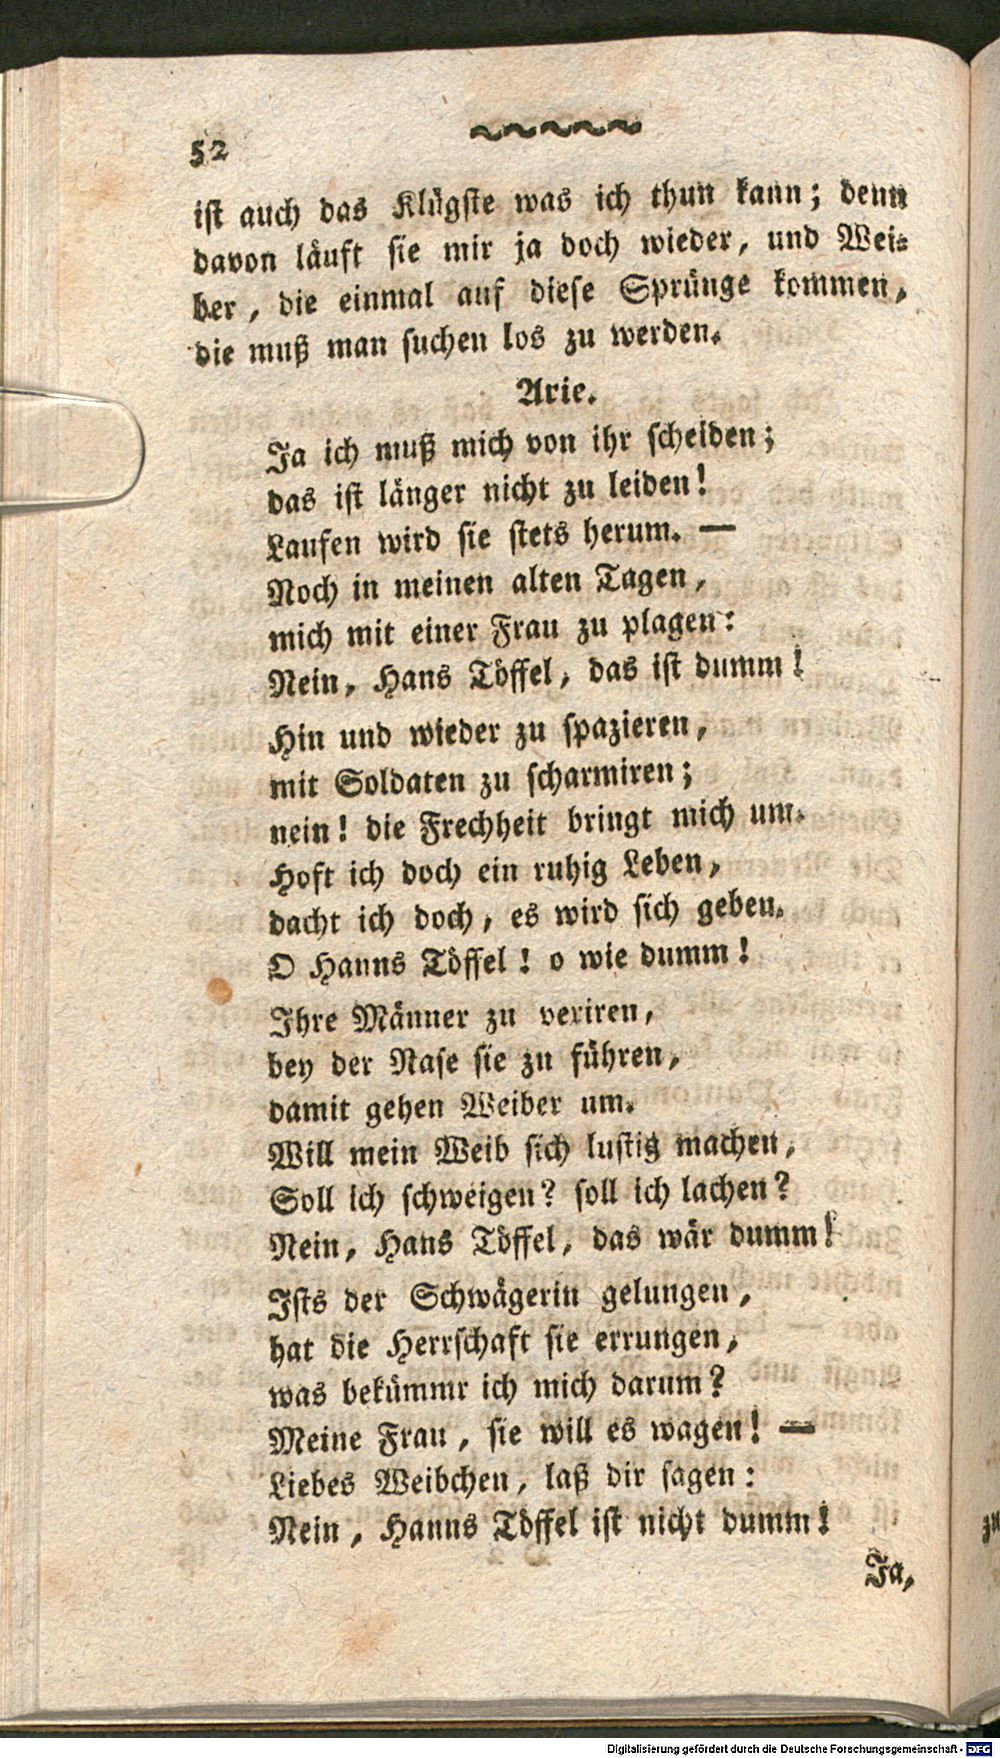 52
ist auch das Klügste was ich thun kann; denn
davon läuft sie mir ja doch wieder, und Wei-
ber, die einmal auf diese Sprünge kommen,
die muß man suchen los zu werden.
Arie.
Ja ich muß mich von ihr scheiden;
das ist länger nicht zu leiden!
Laufen wird sie stets herum. —
Noch in meinen alten Tagen,
mich mit einer Frau zu plagen:
Nein, Hans Töffel, das ist dumm!
Hin und wieder zu spazieren,
mit Soldaten zu scharmiren;
nein! die Frechheit bringt mich um.
Hoft ich doch ein ruhig Leben,
dacht ich doch, es wird sich geben.
O Hanns Töffel! o wie dumm!
Ihre Männer zu vexiren,
bey der Nase sie zu führen,
damit gehen Weiber um.
Will mein Weib sich lustig machen,
Soll ich schweigen? soll ich lachen?
Nein, Hans Töffel, das wär dumm!
Ists der Schwägerin gelungen,
hat die Herrschaft sie errungen,
was bekümmr ich mich darum?
Meine Frau, sie will es wagen! —
Liebes Weibchen, laß dir sagen:
Nein, Hanns Töffel ist nicht dumm!
Ja,
zu
Digitalisierung gefördert durch die Deutsche Forschungsgemeinschaft - DFG